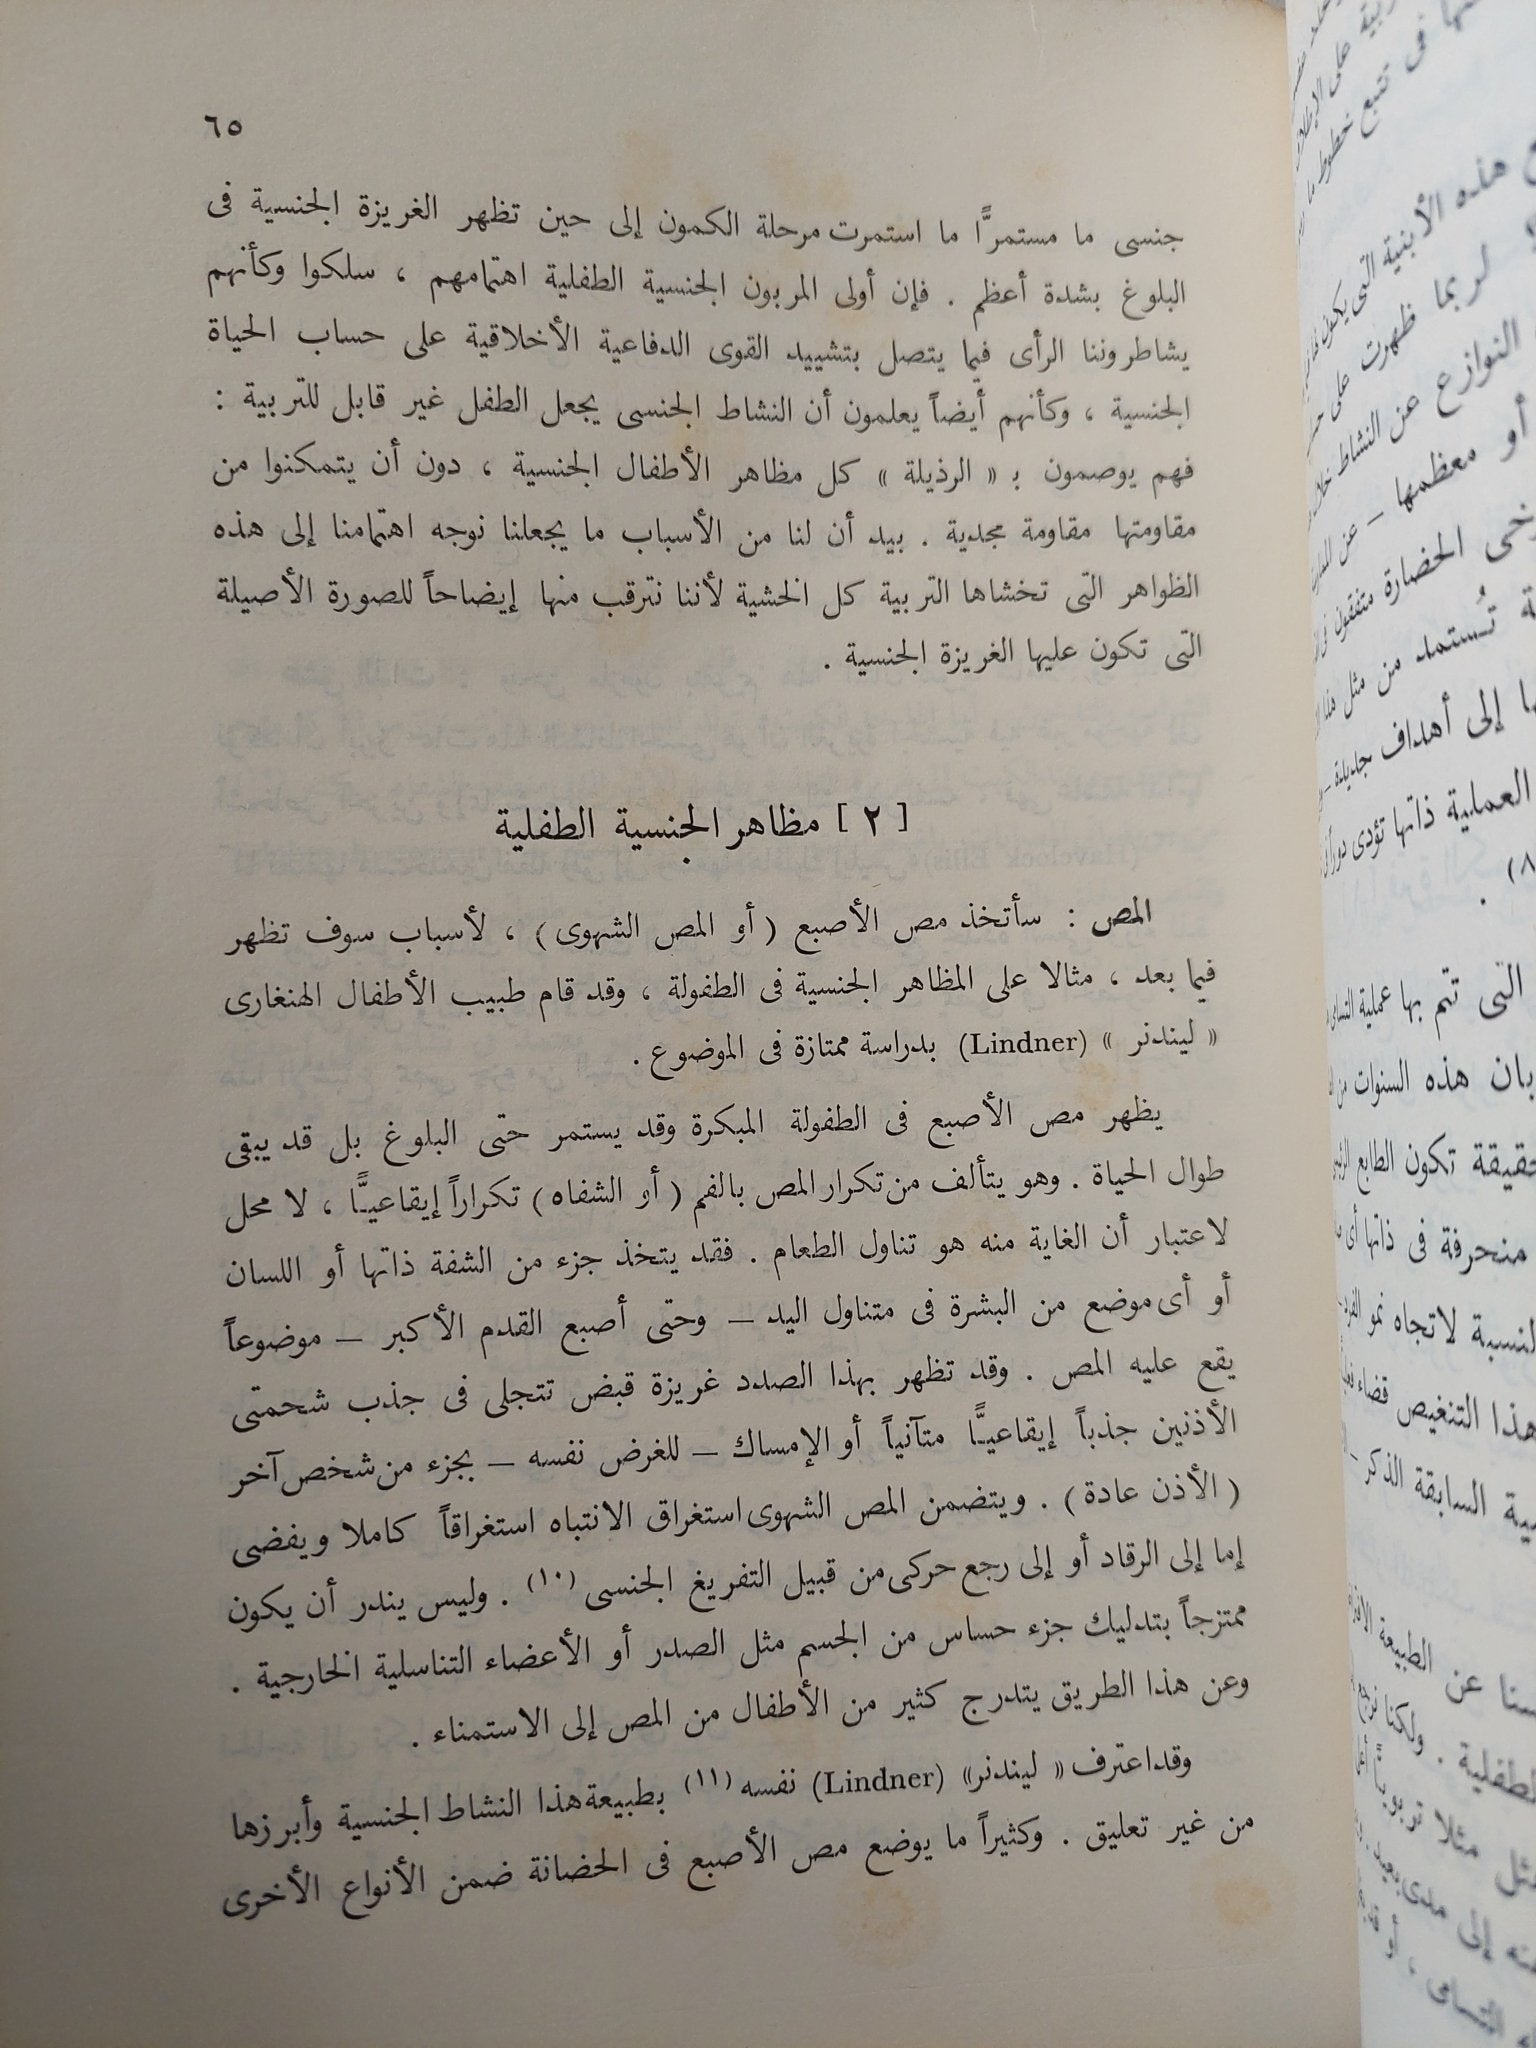 ٦٥
جنسى ما مستمرًّا ما استمرت مرحلة الكمون إلى حين تظهر الغريزة الجنسية فى
البلوغ بشدة أعظم . فإن أولى المربون الجنسية الطفلية اهتمامهم ، سلكوا وكأنهم
يشاطروننا الرأى فيما يتصل بتشييد القوى الدفاعية الأخلاقية على حساب الحياة
الجنسية ، وكأنهم أيضاً يعلمون أن النشاط الجنسى يجعل الطفل غير قابل للتربية :
فهم يوصمون بـ « الرذيلة » كل مظاهر الأطفال الجنسية ، دون أن يتمكنوا من
مقاومتها مقاومة مجدية . بيد أن لنا من الأسباب ما يجعلنا نوجه اهتمامنا إلى هذه
الظواهر التى تخشاها التربية كل الخشية لأننا نترقب منها إيضاحاً للصورة الأصيلة
التى تكون عليها الغريزة الجنسية .
[ ٢ ] مظاهر الجنسية الطفلية
المص : سأتخذ مص الأصبع ( أو المص الشهوى ) ، لأسباب سوف تظهر
فيما بعد ، مثالا على المظاهر الجنسية فى الطفولة ، وقد قام طبيب الأطفال الهنغارى
« ليندنر » (Lindner) بدراسة ممتازة فى الموضوع .
يظهر مص الأصبع فى الطفولة المبكرة وقد يستمر حتى البلوغ بل قد يبقى
طوال الحياة . وهو يتألف من تكرار المص بالفم ( أو الشفاه ) تكراراً إيقاعيًّا ، لا محل
لاعتبار أن الغاية منه هو تناول الطعام . فقد يتخذ جزء من الشفة ذاتها أو اللسان
أو أى موضع من البشرة فى متناول اليد – وحتى أصبع القدم الأكبر – موضوعاً
يقع عليه المص . وقد تظهر بهذا الصدد غريزة قبض تتجلى فى جذب شحمتى
الأذنين جذباً إيقاعيًّا متآنياً أو الإمساك – للغرض نفسه – بجزء من شخص آخر
( الأذن عادة ) . ويتضمن المص الشهوى استغراق الانتباه استغراقاً كاملا ويفضى
إما إلى الرقاد أو إلى رجع حركى من قبيل التفريغ الجنسى (١٠) . وليس يندر أن يكون
ممتزجاً بتدليك جزء حساس من الجسم مثل الصدر أو الأعضاء التناسلية الخارجية .
وعن هذا الطريق يتدرج كثير من الأطفال من المص إلى الاستمناء .
وقد اعترف « ليندنر» (Lindner) نفسه (١١) بطبيعة هذا النشاط الجنسية وأبرزها
من غير تعليق . وكثيراً ما يوضع مص الأصبع فى الحضانة ضمن الأنواع الأخرى
هذه الأبنية التى
لربما ظهرت على
النوازع عن النشاط
أو معظمها – عن
الحضارة متفقون فى
تُستمد من مثل هذا
إلى أهداف جديدة –
العملية ذاتها تؤدى دوراً
٨) .
التى تتم بها عملية التسامى
بان هذه السنوات من
تكون الطابع
منحرفة فى ذاتها أى
لاتجاه نمو الفرد
هذا التنغيص
السابقة الذكر –
عن الطبيعة
. ولكنا
مثلا
إلى مدى بعيد